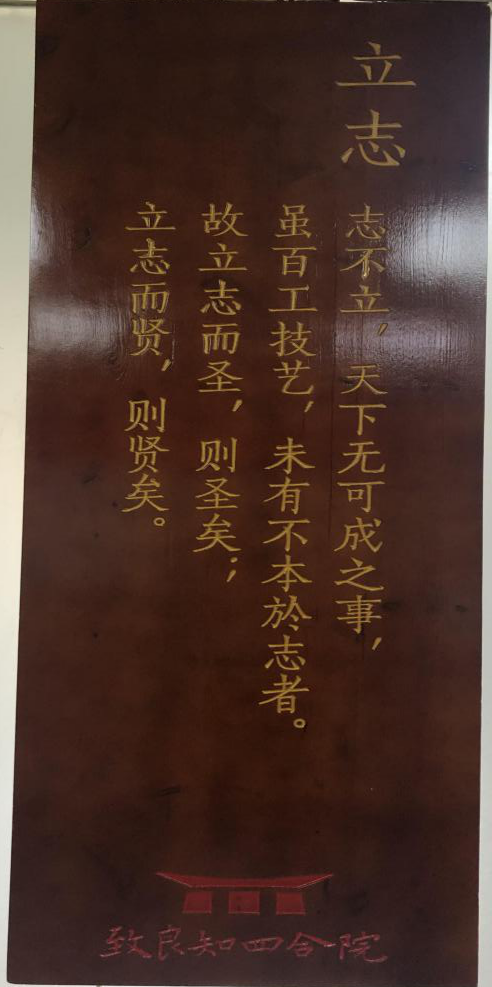 立志
志不立，天下无可成之事，
虽百工技艺，未有不本於志者。
故立志而圣，则圣矣；
立志而贤，则贤矣。
致良知四合院